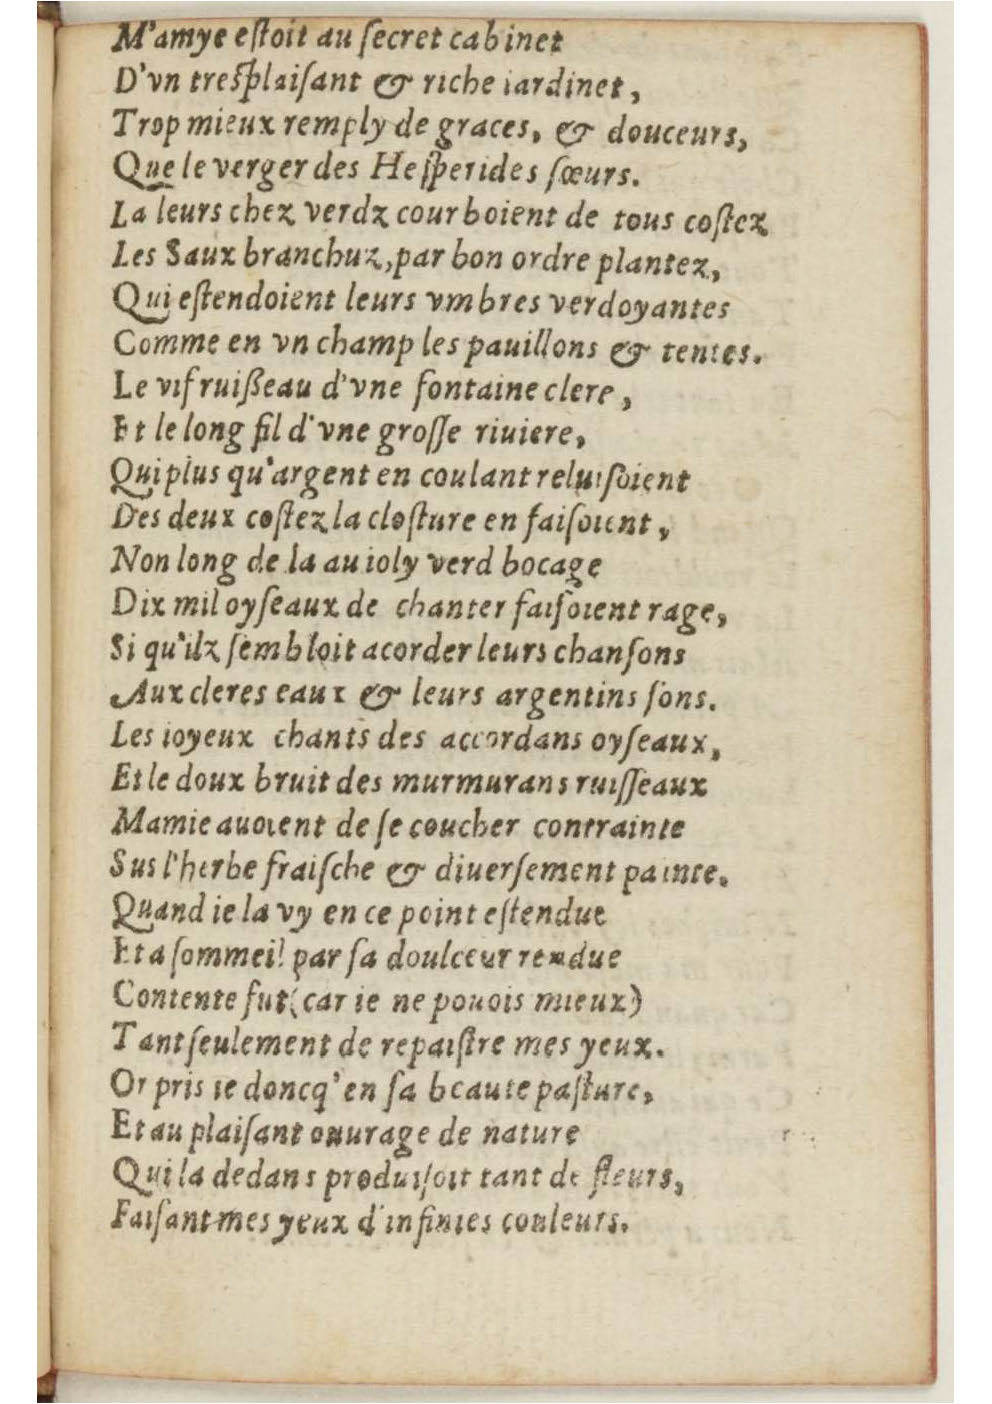 M'amye eſtoit au ſecret cabinet
D'vn treſplaiſant & riche iardinet,
Trop mieux remply de graces, & douceurs,
Que le verger des Heſperides ſœurs.
La leurs chez verdz courboient de tous coſtez
Les Saux branchuz, par bon ordre plantez,
Qui eſtendoient leurs vmbres verdoyantes
Comme en vn champ les pauillons & tentes.
Le vif ruißeau d'vne fontaine clere,
Et le long fil d'vne groſſe riuiere,
Qui plus qu'argent en coulant reluiſoient
Des deux coſtez la cloſture en faiſoient,
Non long de la au ioly verd bocage
Dix mil oyſeaux de chanter faiſoient rage,
Si qu'ilz ſembloit acorder leurs chanſons
Aux cleres eaux & leurs argentins ſons.
Les ioyeux chants des accordans oyſeaux,
Et le doux bruit des murmurans ruiſſeaux
Mamie auoient de ſe coucher contrainte
Sus l'herbe fraiſche & diuerſement painte.
Quand ie la vy en ce point eſtendue
Et a ſommeil par ſa doulceur rendue
Contente fut (car ie ne pouois mieux)
Tant ſeulement de repaiſtre mes yeux.
Or pris ie doncq' en ſa beaute paſture,
Et au plaiſant ouurage de nature
Qui la dedans produiſoit tant de fleurs,
Faiſant mes yeux d'infinies couleurs.